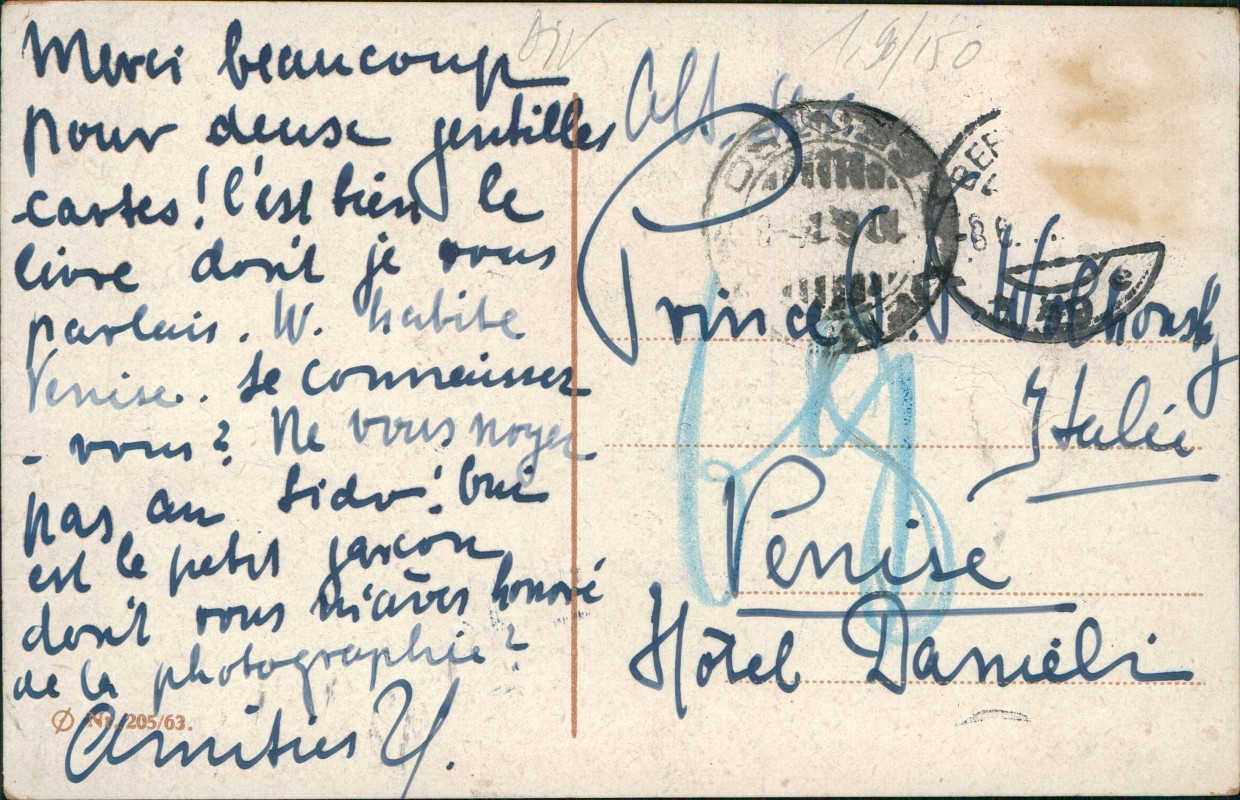 Merci beaucoup
pour deuse gentilles
cartes! C'est bien le
livre dont je vous
parlais. W. habite
Venise. Le connaissez
- vous? Ne vous noyez
pas au Lido! Qui
est le petit garçon
dont vous m'avez honoré
de la photographie?
Amitiés Y.
Nr. 205/63.
Div
1.90/150
Prince
Italie
Venise
Hôtel Daniéli